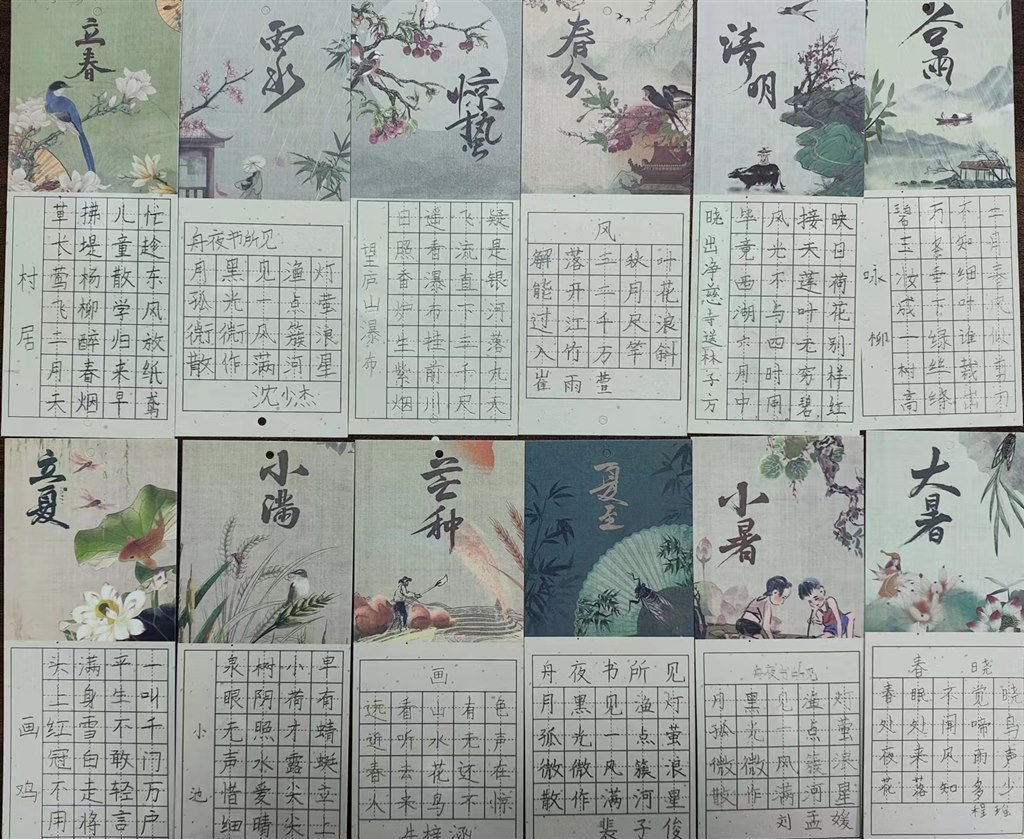 立春
村居
草长莺飞二月天
拂堤杨柳醉春烟
儿童散学归来早
忙趁东风放纸鸢
雨水
舟夜书所见
月黑见渔灯
孤光一点萤
微微风簇浪
散作满河星
沈少杰
惊蛰
望庐山瀑布
日照香炉生紫烟
遥看瀑布挂前川
飞流直下三千尺
疑是银河落九天
春分
风
解落三秋叶
能开二月花
过江千尺浪
入竹万竿斜
崔雨萱
清明
晓出净慈寺送林子方
毕竟西湖六月中
风光不与四时同
接天莲叶无穷碧
映日荷花别样红
谷雨
咏柳
碧玉妆成一树高
万条垂下绿丝绦
不知细叶谁裁出
二月春风似剪刀
立夏
画鸡
头上红冠不用
满身雪白走将
平生不敢轻言
一叫千门万户
小满
小池
泉眼无声惜细
树阴照水爱晴
小荷才露尖尖
早有蜻蜓立上
芒种
画
远看山有色
近听水无声
春去花还在
人来鸟不惊
夏至
舟夜书所见
月黑见渔灯
孤光一点萤
微微风簇浪
散作满河星
裴子俊
小暑
舟夜书所见
月黑见渔灯
孤光一点萤
微微风簇浪
散作满河星
刘孟媛
大暑
春晓
春眠不觉晓
处处闻啼鸟
夜来风雨声
花落知多少
程瑶